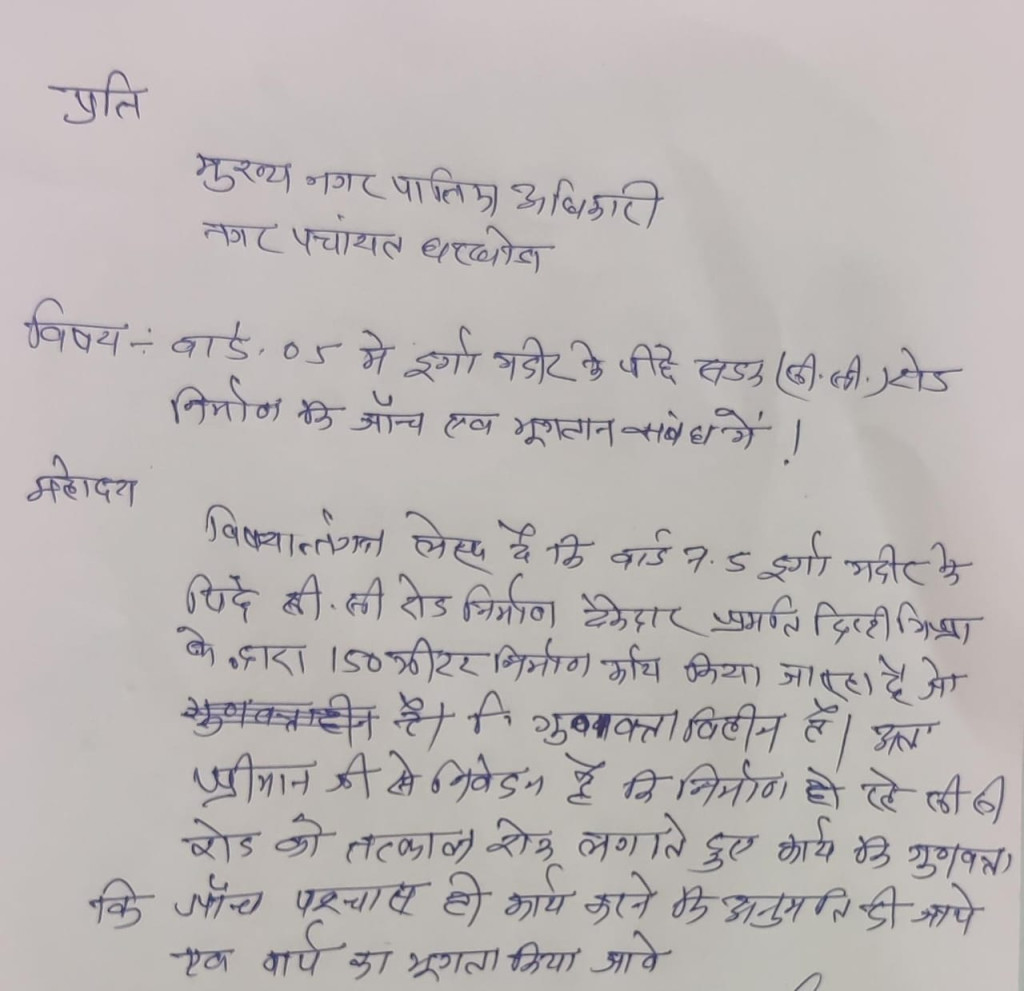 प्रति
मुख्य नगर पालिका अधिकारी
नगर पचांयत घरघोडा
विषय÷ वार्ड. 05 मे दुर्गा मदीर के पीछे सडक (सी.सी.) रोड
निर्माण कि जॉच एव भूगतान संबंध में !
महोदय
विषयान्तंगत लेख है कि वार्ड न. 5 दुर्गा मदीर के
पिछे सी.सी रोड निर्माण ठेकेदार
के द्वारा 150 मीटर निर्माण कार्य किया जा रहा है जो
है। कि गुणवक्ता विहीन है। अतः
श्रीमान जी से निवेदन है कि निर्माण हो रहे सी सी
रोड को तत्काल रोक लगाते हुए कार्य कि गुणवक्ता
कि जॉच पश्चात ही कार्य करने कि अनुमति दी जाये
एव कार्य का भूगता किया जावे